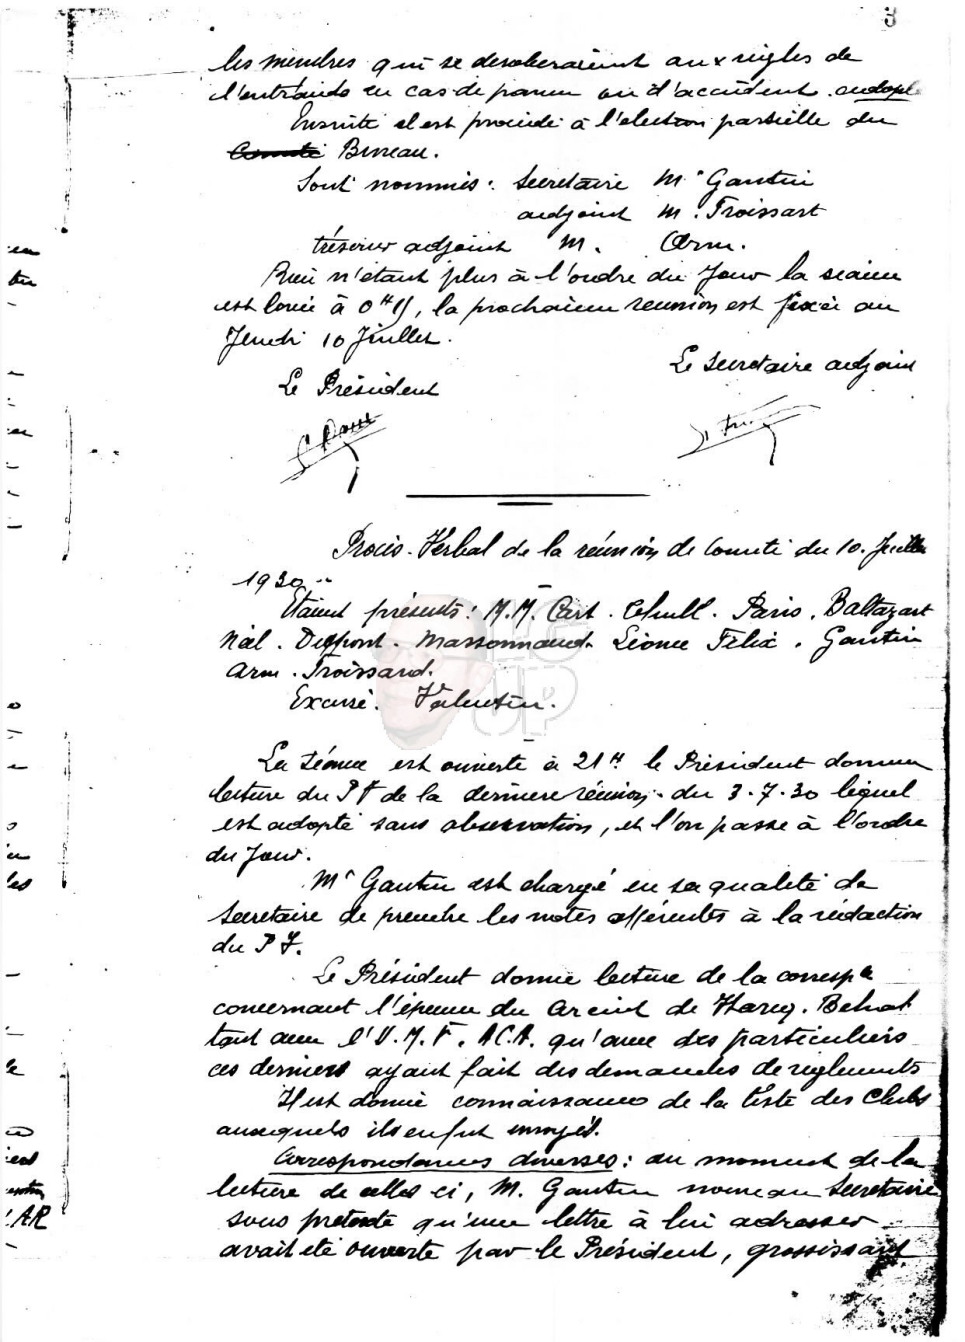 3
les membres qui se deroberaient aux règles de
l'entr'aide en cas de panne ou d'accident. adopté
Ensuite il est procédé à l'election partielle du
Comité Bureau.
Sont nommés: Secretaire Mr Gantin
adjoint M. Froissart
trésorier adjoint M. Arm.
Rien n'étant plus à l'ordre du Jour la séance
est levée à 0H, la prochaine reunion est fixée au
Jeudi 10 Juillet.
Le Secretaire adjoint
Le Président
Procès-Verbal de la réunion de Comité du 10 Juillet
1930
Etaient présents: M.M. Cart. Paris. Baltazart
Nal. Dupont. Massonnaud. Léonce Félix. Gantin
Arm. Froissard.
Excusé. Valentin.
LUC UP
La Séance est ouverte à 21H. le Président donne
lecture du PV de la derniere réunion du 3.7.30 lequel
est adopté sans observation, et l'on passe à l'ordre
du Jour.
Mr Gantin est chargé en sa qualité de
Secretaire de prendre les notes afférentes à la rédaction
du P V.
Le Président donne lecture de la corresp
concernant l'épreuve du Circuit de Harcy. Behal
tant avec l'U.M.F. A.C.A. qu'avec des particuliers
ces derniers ayant fait des demandes de reglements
Il est donné connaissance de la liste des Clubs
auxquels ils en fut envoyés.
Correspondances diverses: au moment de la
lecture de celles ci, M. Gantin nouveau Secretaire
sous pretexte qu'une lettre à lui adressée
avait été ouverte par le Président, grossissant
AR